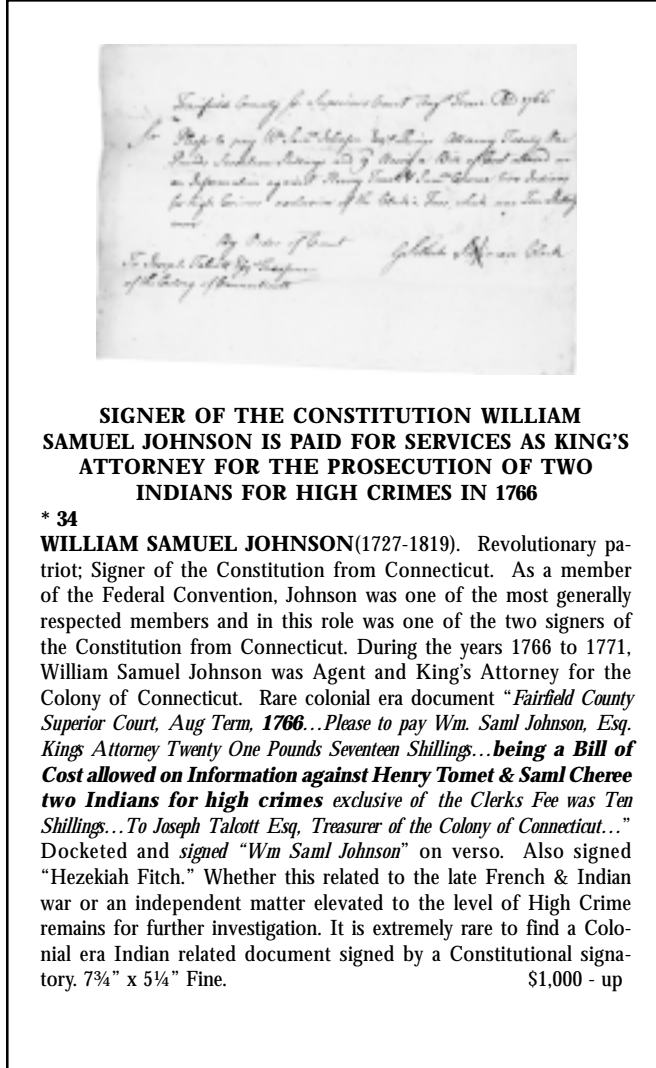 Fairfield County
1766
Sir
Please to pay
Kings Attorney Twenty One
Pounds Seventeen Shillings and
an Information against Henry two Indians
for high Crimes exclusive of the Clerks Fees which was Ten Shillings
By Order of Court
Clerk
To Joseph Talcott Esqr Treasurer
of the Colony of Connecticutt
SIGNER OF THE CONSTITUTION WILLIAM
SAMUEL JOHNSON IS PAID FOR SERVICES AS KING'S
ATTORNEY FOR THE PROSECUTION OF TWO
INDIANS FOR HIGH CRIMES IN 1766
* 34
WILLIAM SAMUEL JOHNSON(1727-1819). Revolutionary pa-
triot; Signer of the Constitution from Connecticut. As a member
of the Federal Convention, Johnson was one of the most generally
respected members and in this role was one of the two signers of
the Constitution from Connecticut. During the years 1766 to 1771,
William Samuel Johnson was Agent and King's Attorney for the
Colony of Connecticut. Rare colonial era document "Fairfield County
Superior Court, Aug Term, 1766…Please to pay Wm. Saml Johnson, Esq.
Kings Attorney Twenty One Pounds Seventeen Shillings…being a Bill of
Cost allowed on Information against Henry Tomet & Saml Cheree
two Indians for high crimes exclusive of the Clerks Fee was Ten
Shillings…To Joseph Talcott Esq, Treasurer of the Colony of Connecticut…"
Docketed and signed "Wm Saml Johnson" on verso. Also signed
"Hezekiah Fitch." Whether this related to the late French & Indian
war or an independent matter elevated to the level of High Crime
remains for further investigation. It is extremely rare to find a Colo-
nial era Indian related document signed by a Constitutional signa-
tory. 7¾" x 5¼" Fine. $1,000 - up